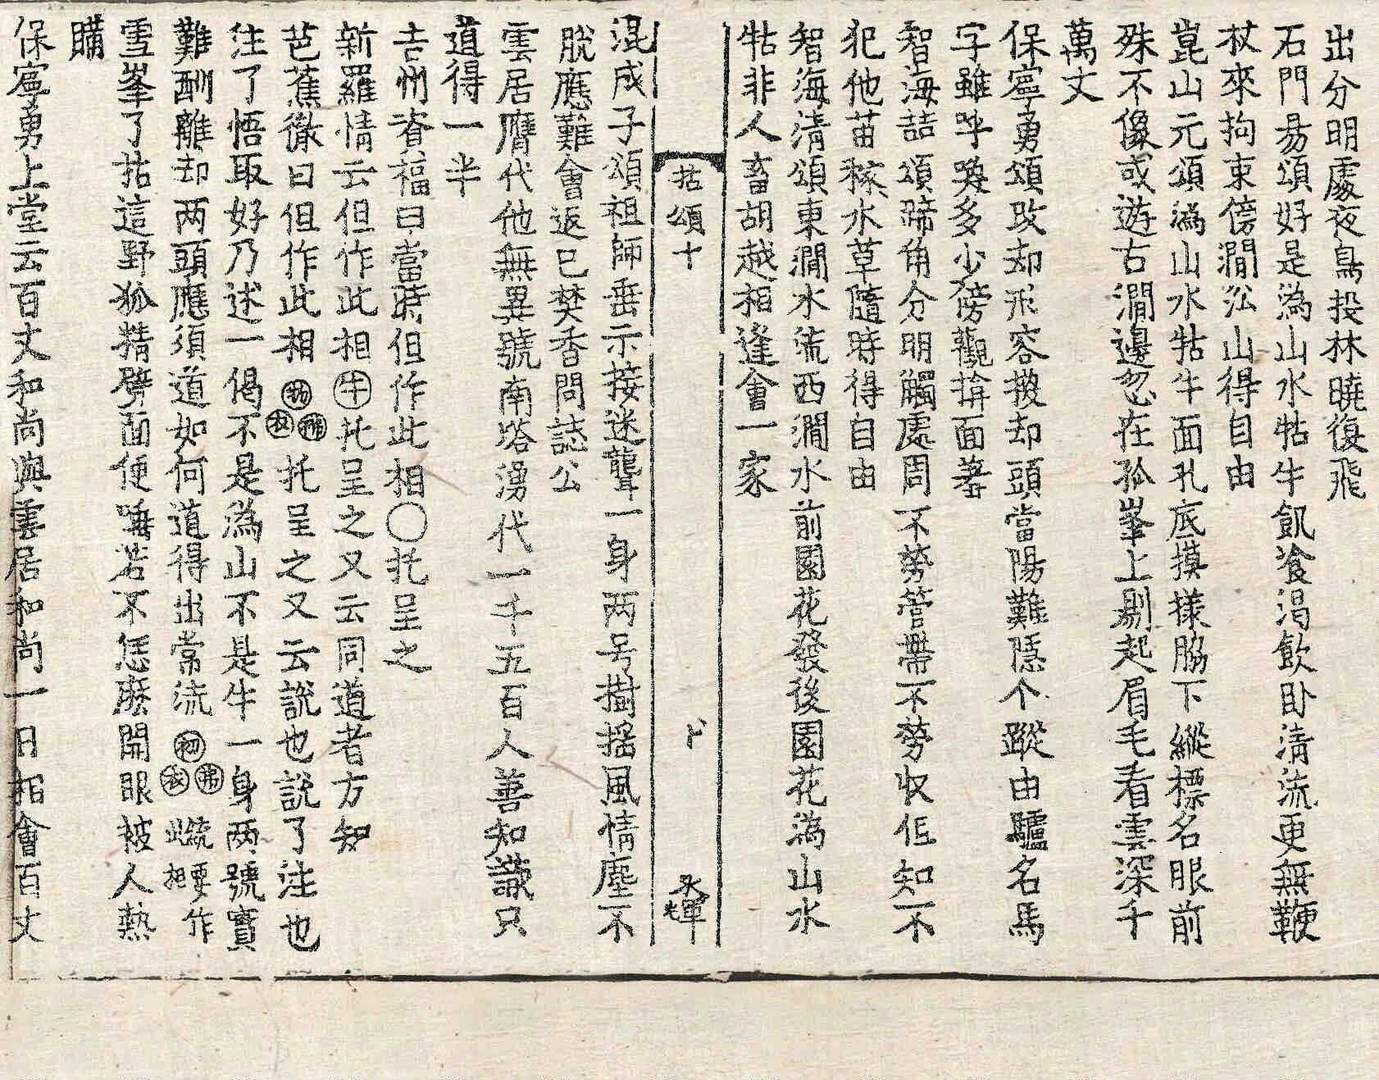 出分明處夜鳥投林曉復飛
石門易頌好是溈山水牯牛飢飡渴飲臥清流更無鞭
杖來拘束傍澗㳂山得自由
崑山元頌溈山水牯牛面孔底摸㨾脇下縱標名眼前
殊不像或遊古澗邊忽在孤峯上剔起眉毛看雲深千
萬丈
保寧勇頌改却形容換却頭當陽難隱个蹤由驢名馬
字雖呼喚多少傍觀捹面羞
智海喆頌蹄角分明觸處周不勞管帶不勞收但知不
犯他苗稼水草隨時得自由
智海清頌東澗水流西澗水前園花發後園花溈山水
牯非人畜胡越相逢會一家
拈頌十
卜
混成子頌祖師垂示接迷聾一身两号樹搖風情塵不
脫應難會返已焚香問誌公
雲居膺代他無異號南塔湧代一千五百人善知識只
道得一半
吉州資福曰當時但作此相〇托呈之
新羅情云但作此相㊉牛托呈之又云同道者方知
芭蕉徹曰但作此相托呈之又云說也說了注也
注了悟取好乃述一偈不是溈山不是牛一身两號實
難酬離却两頭應須道如何道得出常流
雪峯了拈這野狐精劈面便唾若不恁麽開眼被人熱
瞞
保寧勇上堂云百丈和尚與雲居和尚一日相會百丈